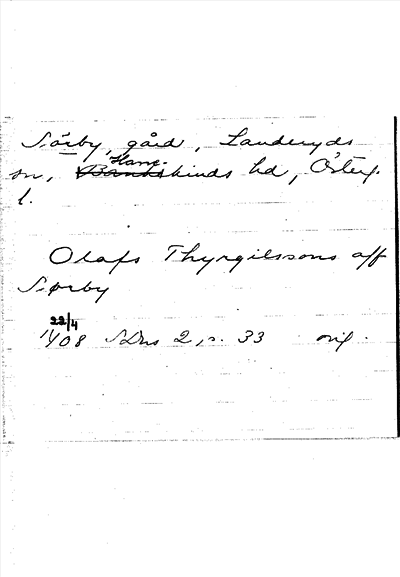 Sörby, gård, Landeryds
sn, Hane- Bankekinds hd, Österg.
l.
Olafs Thyrgilssons aff
Sørby
22/4
1408 SDns 2, s. 33 orig.